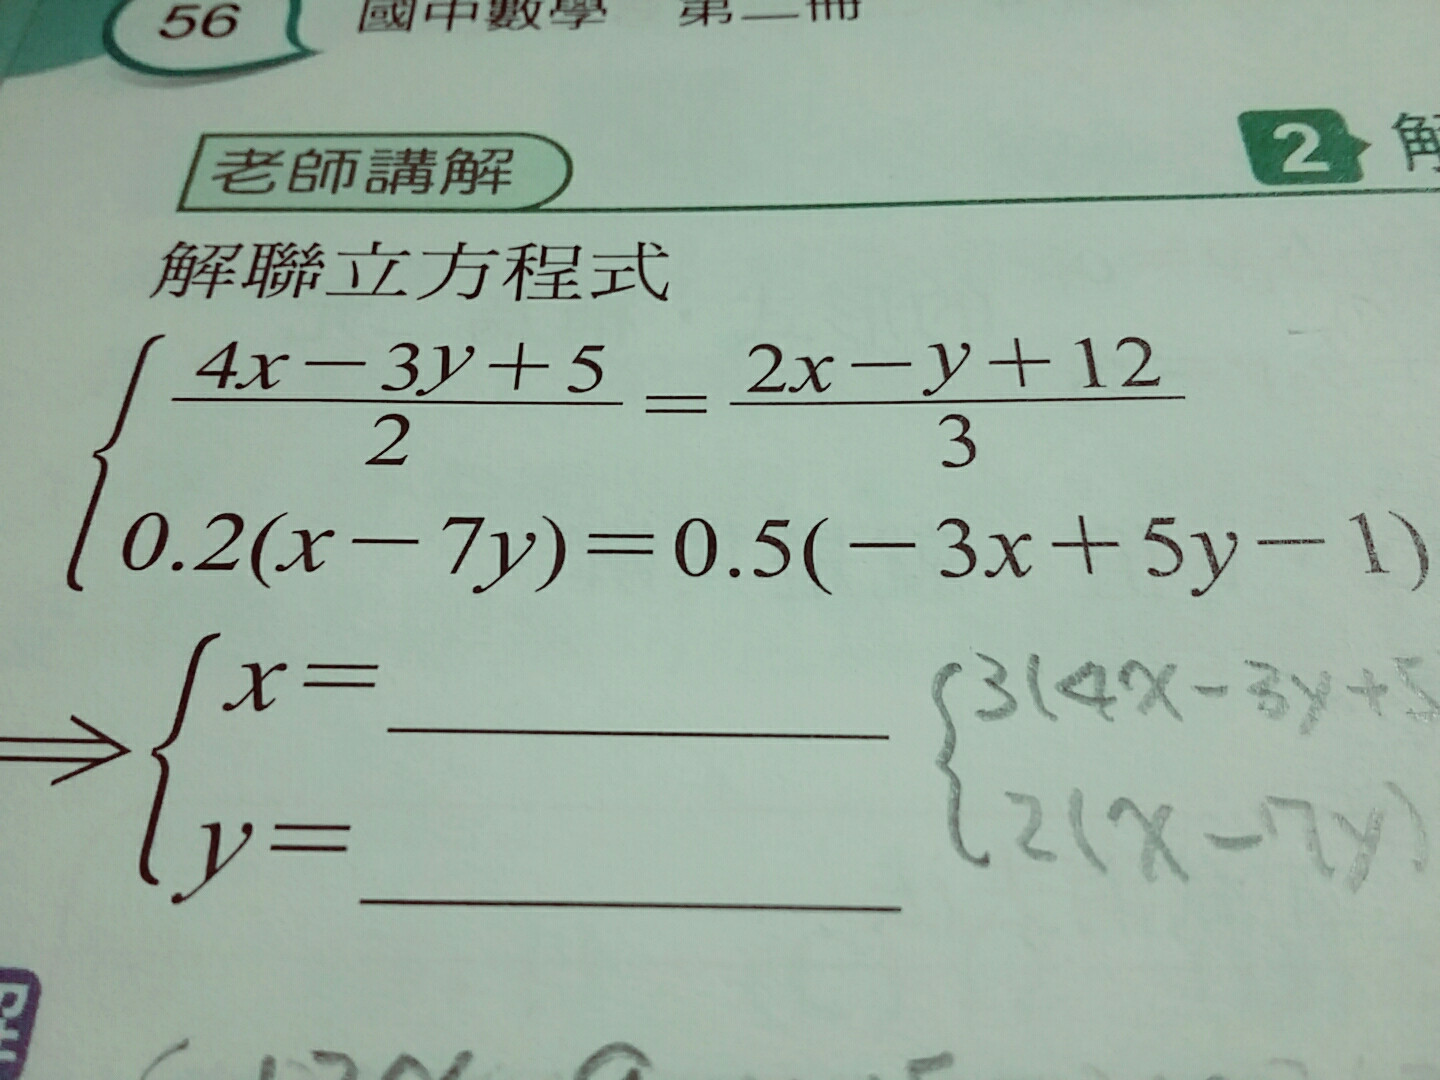 56 國中數學 第二冊
老師講解
2 解
解聯立方程式
4x－3y＋5/2＝2x－y＋12/3
0.2(x－7y)＝0.5(－3x＋5y－1)
⇒ x＝
y＝
3(4x-3y+5
2(x-7y)
解